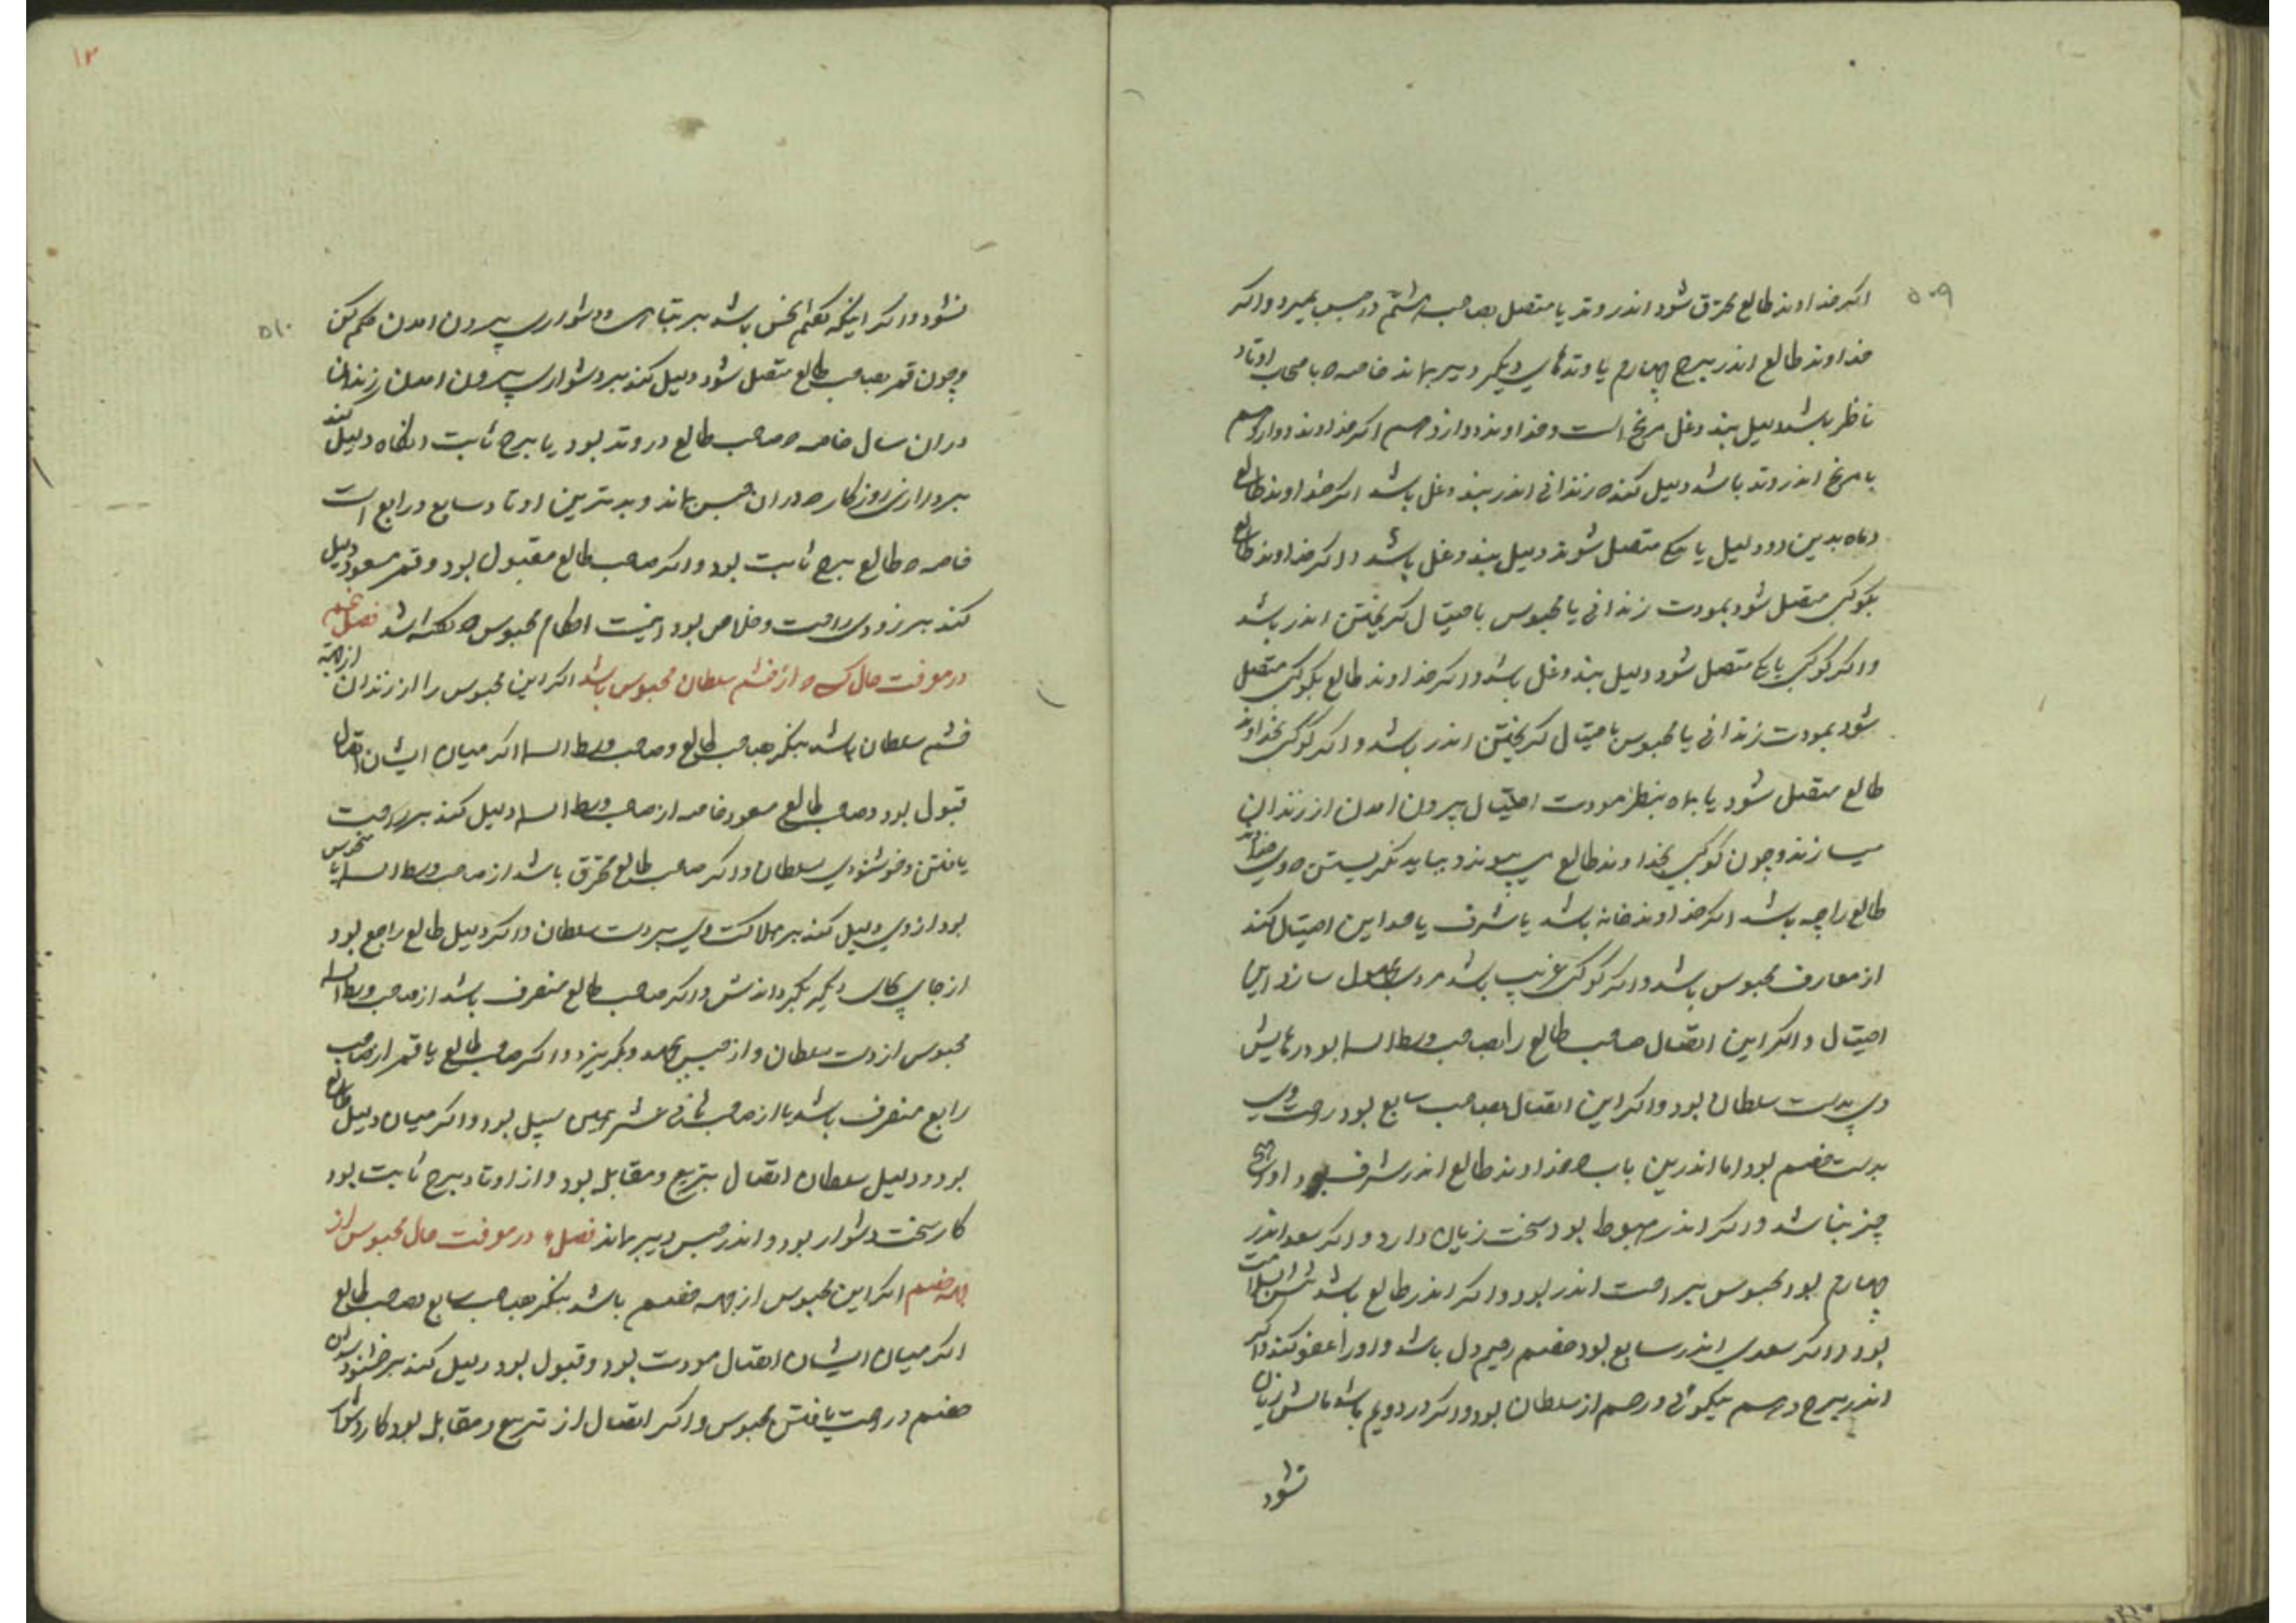 ۵۰۹
اکر خداوند طالع محترق شود اندر وتد یا متصل بصاحب هشتم در حبس بمیرد و اکر
خداوند طالع اندر برج چهارم یا وتدهای دیکر دیر بماند خاصه با صحاب اوتاد
ناظر باشد دلیل بند و غل مریخ است و خداوند دوازدهم اکر خداوند دوازدهم
با مریخ اندر وتد باشد دلیل کند ه زندانی اندر بند و غل باشد اکر خداوند طالع
و ماه بدین دو دلیل یا یکی متصل شوند دلیل بند و غل باشد و اکر خداوند طالع
بکوکبی متصل شود بمودت زندانی یا محبوس باحتیال کریختن اندر باشد
و اکر کوکبی با یکی متصل شود دلیل بند و غل باشد و اکر خداوند طالع بکوکبی متصل
شود بمودت زندانی یا محبوس باحتیال کریختن اندر باشد و اکر کوکبی بخداوند
طالع متصل شود یا بماه بنظر مودت احتیال بیرون امدن از زندان
میسازند و چون کوکبی بخداوند طالع می پیوندد بباید نکریستن ه وی خداوند
طالع را چه باشد اکر خداوند خانه باشد یا شرف یا حد این احتیال کند
از معارف محبوس باشد و اکر کوکبی غریب باشد مردی مجهول سازد این
احتیال و اکر این اتصال صاحب طالع را بصاحب وسط السما بود رهایش
وی بدست سلطان بود و اکر این اتصال بصاحب سابع بود راحت وی
بدست خصم بود اما اندرین باب ه خداوند طالع اندر شرف بود او را هیچ
چیز نباشد و اکر اندر هبوط بود سخت زیان دارد و اکر سعد اندر
چهارم بود محبوس براحت اندر بود و اکر اندر طالع باشد تنش را سلامت
بود و اکر سعدی اندر سابع بود خصم رحیم دل باشد و او را عفو کند و اکر
اندر برج دهم نیکوئی و رحم از سلطان بود و اکر در دویم باشد مالش زیان
نشود
۱۲
۵۱۰
نشود و اکر اینکه کفتم نحس باشد بر تباهی و دشواری بیرون امدن حکم کن
و چون قمر بصاحب طالع متصل شود دلیل کند بر دشواری بیرون امدن از زندان
دران سال خاصه ه صاحب طالع در وتد بود یا برج ثابت انکاه دلیل کند
بر درازی روزکار ه دران حبس بماند و بدترین اوتاد سابع و رابع است
خاصه ه طالع برج ثابت بود و اکر صاحب طالع مقبول بود و قمر مسعود دلیل
کند بر زودی راحت و خلاص بود اینست احکام محبوس ه کفته اشد فصل پنجم
در معرفت حال کسی ه از خشم سلطان محبوس باشد اکر این محبوس را از زندان از جهة
خشم سلطان باشد بنکر بصاحب طالع و صاحب وسط السما اکر میان ایشان اتصال
قبول بود و صاحب طالع مسعود خاصه از صاحب وسط السما دلیل کند بر راحت
یافتن و خوشنودی سلطان و اکر صاحب طالع محترق باشد از صاحب وسط السما یا منحوس
بود از وی دلیل کند بر هلاکت وی بر دست سلطان و اکر دلیل طالع راجع بود
از جای بجای دیکر بکرداندش و اکر صاحب طالع منصرف باشد از صاحب وسط السما
محبوس از دست سلطان و از حبس بجهد و بکریزد و اکر صاحب طالع یا قمر از صاحب
رابع منصرف باشد یا از صاحب ثانی عشر همین سبیل بود و اکر میان دلیل طالع
بود و دلیل سلطان اتصال بتربیع و مقابله بود و از اوتاد برج ثابت بود
کار سخت دشوار بود و اندر حبس دیر بماند فصل ۶ در معرفت حال محبوس از
جهة خصم اکر این محبوس از جهة خصم باشد بنکر بصاحب سابع بصاحب طالع
اکر میان ایشان اتصال مودت بود و قبول بود دلیل کند بر خشنود شدن
خصم و راحت یافتن محبوس و اکر اتصال از تربیع و مقابله بود کار دشوار